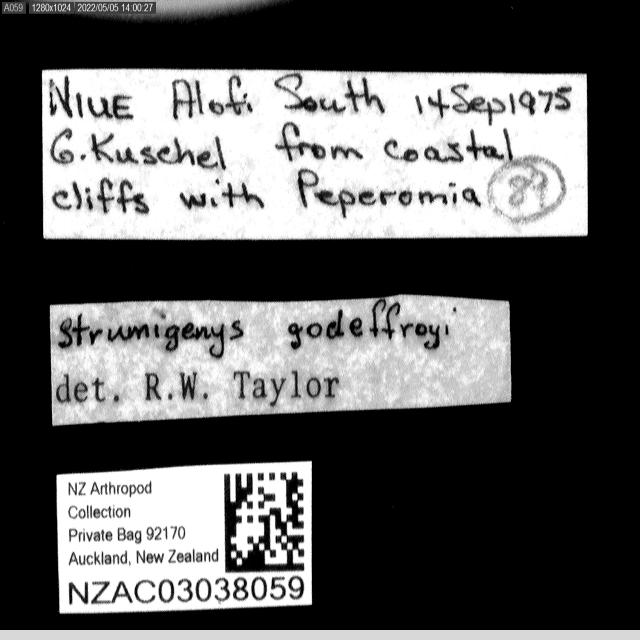 A059 1280x1024 2022/05/05 14:00:27
NIUE Alofi South 14Sep1975
G.Kuschel from coastal
cliffs with Peperomia 89
Strumigenys godeffroyi
det. R.W. Taylor
NZ Arthropod
Collection
Private Bag 92170
Auckland, New Zealand
NZAC03038059